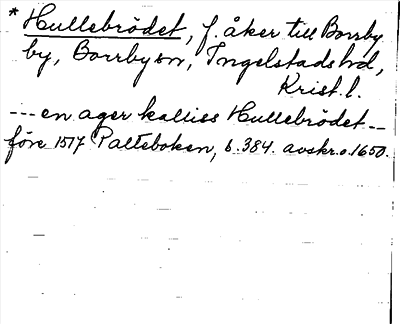 * Hullebrödet, f. åker till Borrby
by, Borrby sn, Ingelstads hd,
Krist. l.
--- en ager kalliss Hullebrödet --
före 1517 Palteboken, b. 384. avskr. o. 1650.